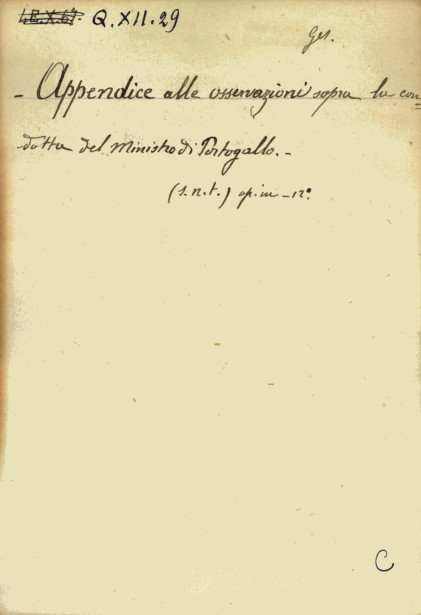 4.E.X.67. Q.XII.29
Ges.
- Appendice alle osservazioni sopra la con=
dotta del Ministro di Portogallo.-
(s.n.t.) op. in-12°.
C